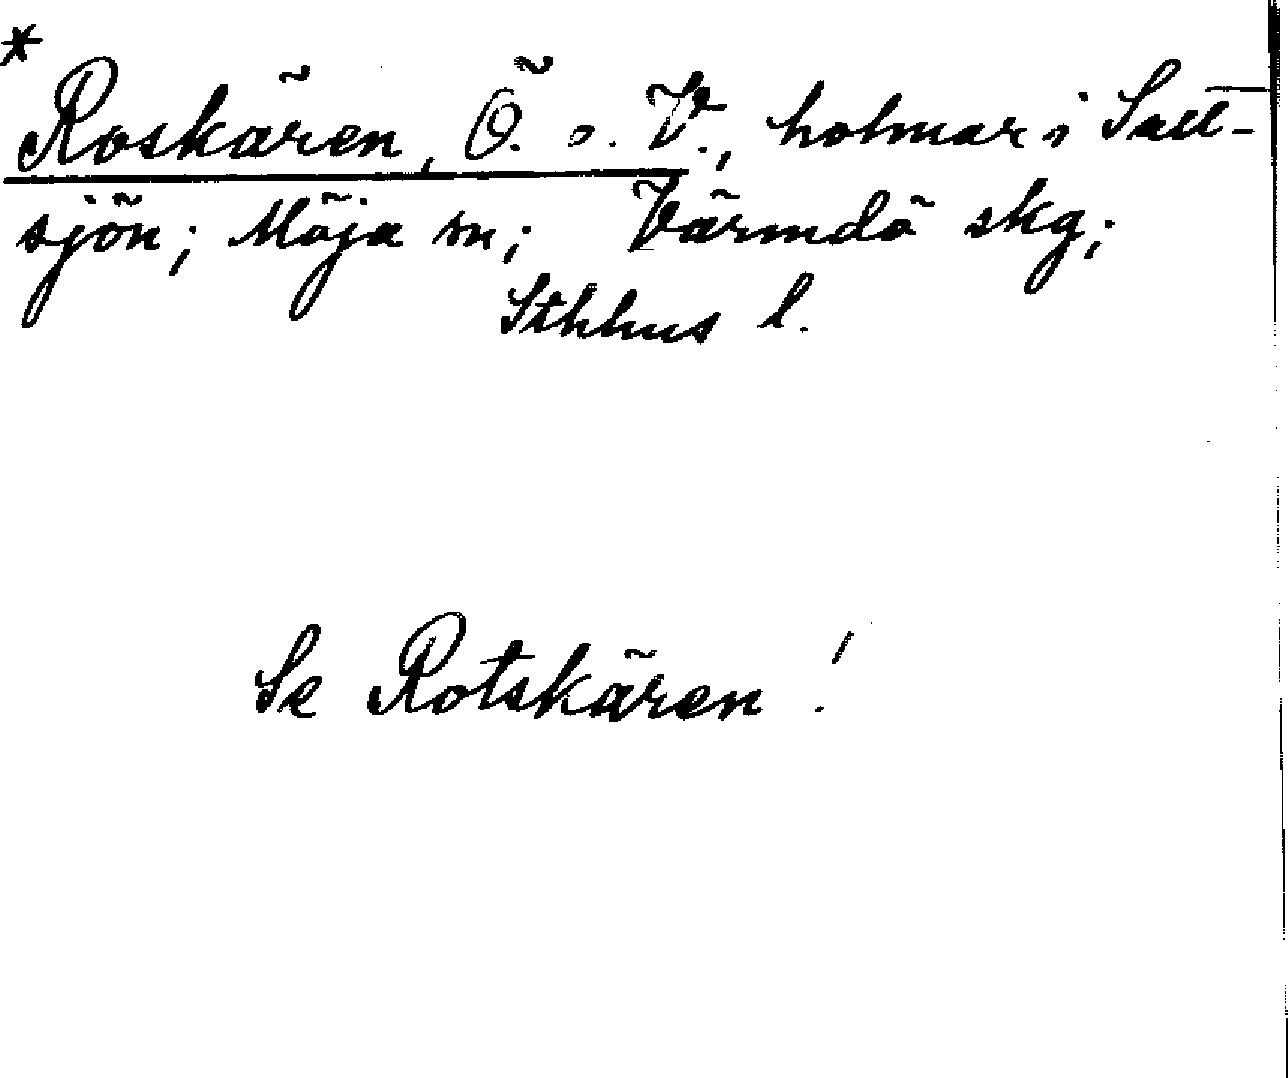 *
Roskären, Ö. o. V., holmar i Salt-
sjön; Möja sn; Värmdö skg;
Sthlms l.
Se Rotskären!